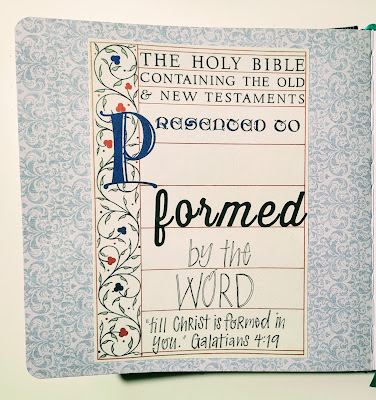 THE HOLY BIBLE
CONTAINING THE OLD
& NEW TESTAMENTS
PRESENTED TO
formed
by the
WORD
"till CHRIST is formed in
you." Galatians 4:19